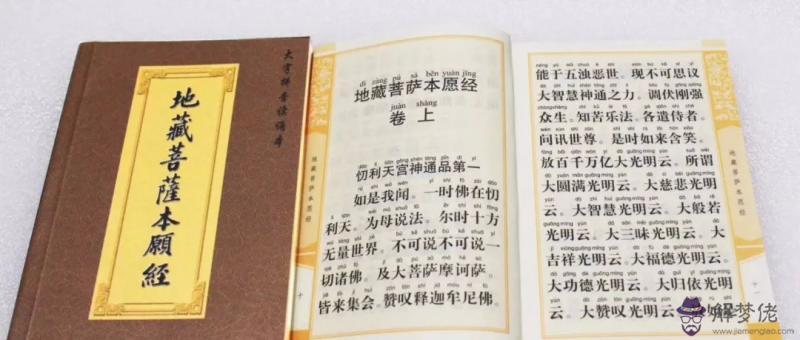 地藏菩薩本願經
大字拼音读诵本
dì zàng pú sà běn yuàn jīng
地藏菩萨本愿经
juàn shàng
卷上
忉利天宫神通品第一
如是我闻。一时佛在忉
利天。为母说法。尔时十方
无量世界。不可说不可说一
切诸佛。及大菩萨摩诃萨。
皆来集会。赞叹释迦牟尼佛。
十
能于五浊恶世。现不可思议
大智慧神通之力。调伏刚强
众生。知苦乐法。各遣侍者。
问讯世尊。是时如来含笑。
放百千万亿大光明云。所谓
大圆满光明云。大慈悲光明
云。大智慧光明云。大般若
光明云。大三昧光明云。大
吉祥光明云。大福德光明云。
大功德光明云。大归依光明
云。大赞叹光明云。
地藏菩萨本愿经
十一
解梦佬
www.jiemenglao.com